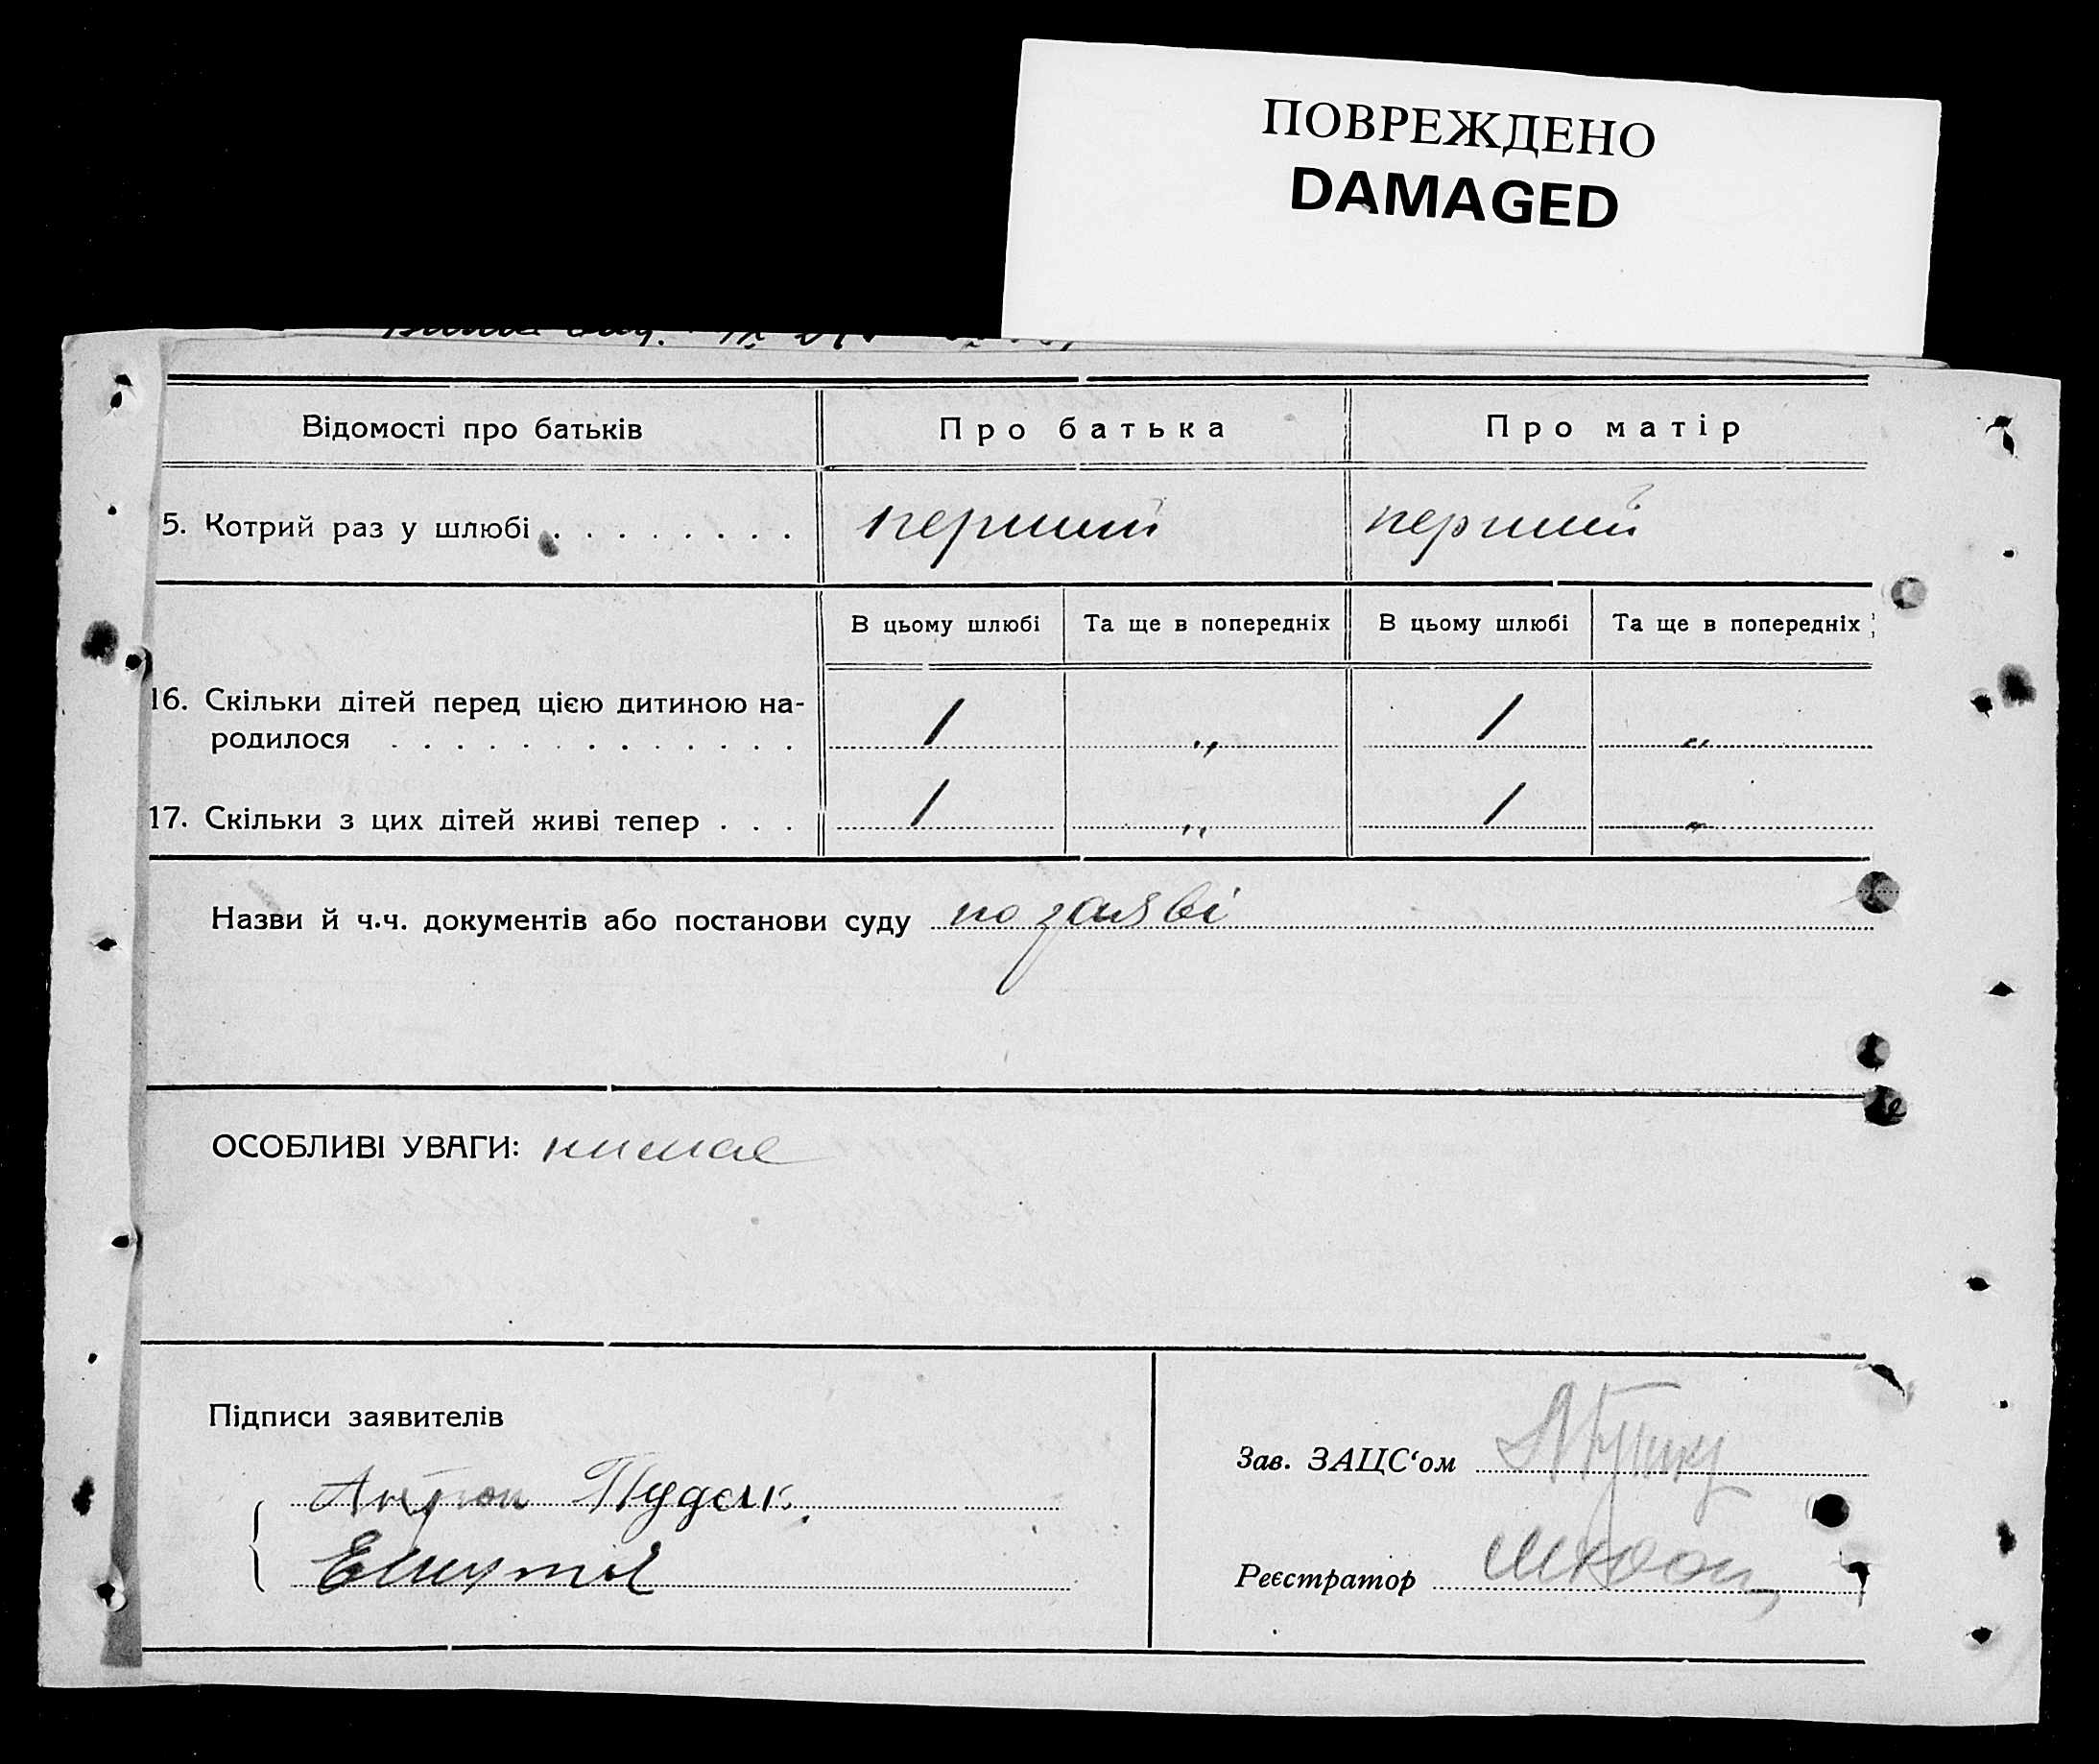 ПОВРЕЖДЕНО
DAMAGED
Відомості про батьків Про батька Про матір
5. Котрий раз у шлюбі . . . . . . . . перший перший
В цьому шлюбі Та ще в попередніх В цьому шлюбі Та ще в попередніх
16. Скільки дітей перед цією дитиною на-
родилося . . . . . . . . . . . . . 1 „ 1 „
17. Скільки з цих дітей живі тепер . . . 1 „ 1 „
Назви й ч.ч. документів або постанови суду по заяві
ОСОБЛИВІ УВАГИ: нимае
Підписи заявителів
Зав. ЗАЦС‘ом
Реєстратор